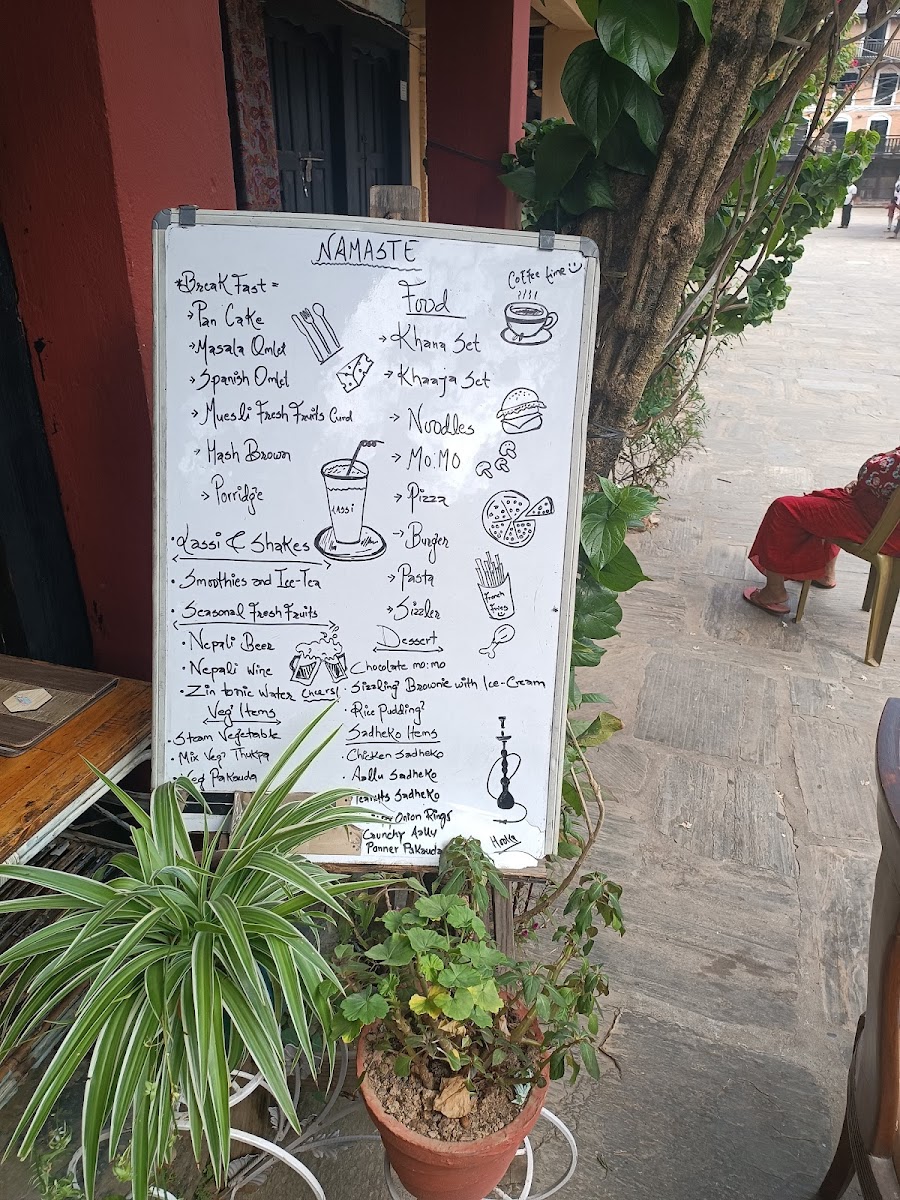 NAMASTE
*Break Fast =
→Pan Cake
→Masala Omlet
→Spanish Omlet
→Muesli Fresh Fruits Curd
→Hash Brown
→Porridge
•Lassi & Shakes
•Smoothies and Ice-Tea
•Seasonal Fresh Fruits
•Nepali Beer
•Nepali wine
•Zin tonic Water
Cheers!
Veg' Items
•Steam Vegetable
•Mix Veg' Thukpa
•Veg Pakauda
LASSI
Coffee time
Food
→Khana Set
→Khaaja Set
→Noodles
→Mo:Mo
→Pizza
→Burger
→Pasta
→Sizzler
French
Fries
Dessert
Chocolate mo:mo
•Sizzling Brownie with Ice-Cream
•Rice Pudding
Sadheko Items
•Chicken Sadheko
•Aallu Sadheko
Sadheko
Onion Rings
Crunchy Aally
Panner Pakauda